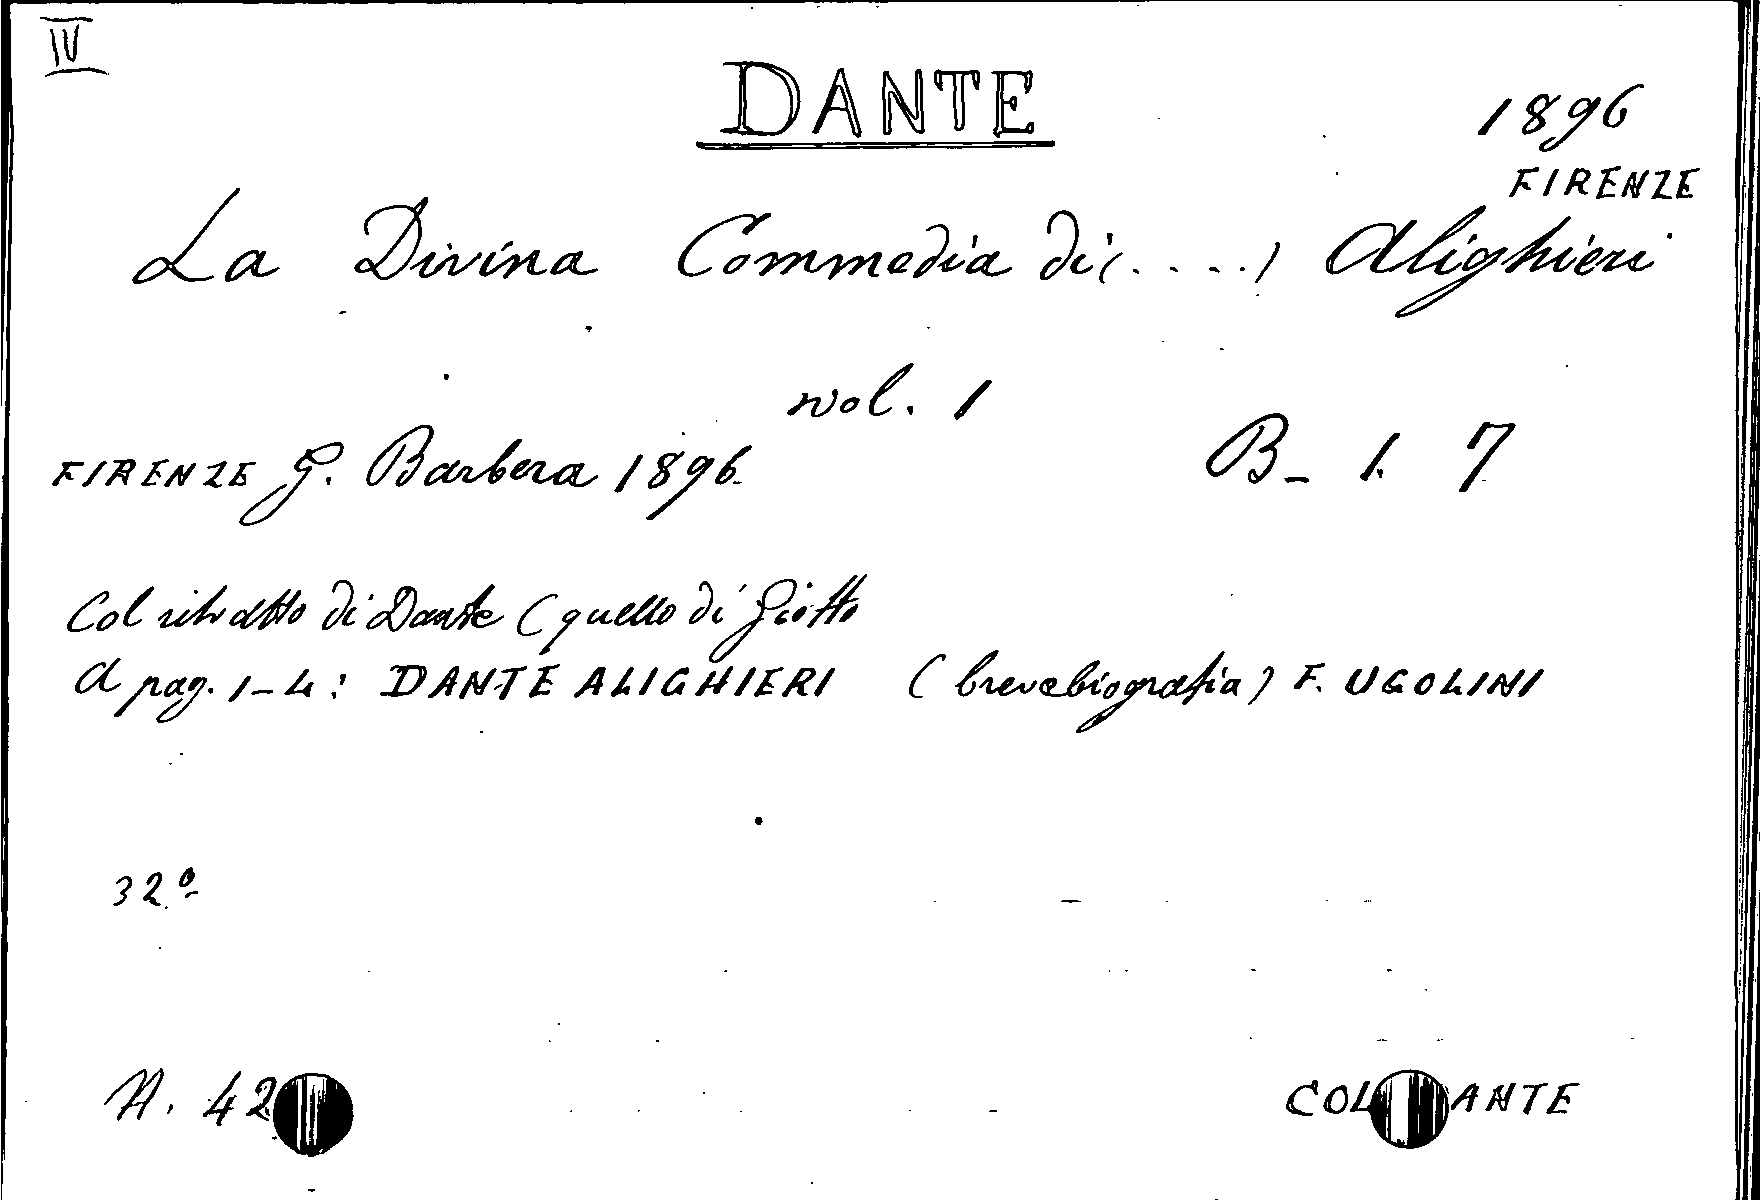 IV
DANTE
1896
FIRENZE
La Divina Commedia di (....) Alighieri
vol. 1
FIRENZE G. Barbera 1896
B- 1. 7
Col ritratto di Dante (quello di Giotto
A pag. 1-4: DANTE ALIGHIERI (breve biografia) F. UGOLINI
32º
N. 42
COL ANTE